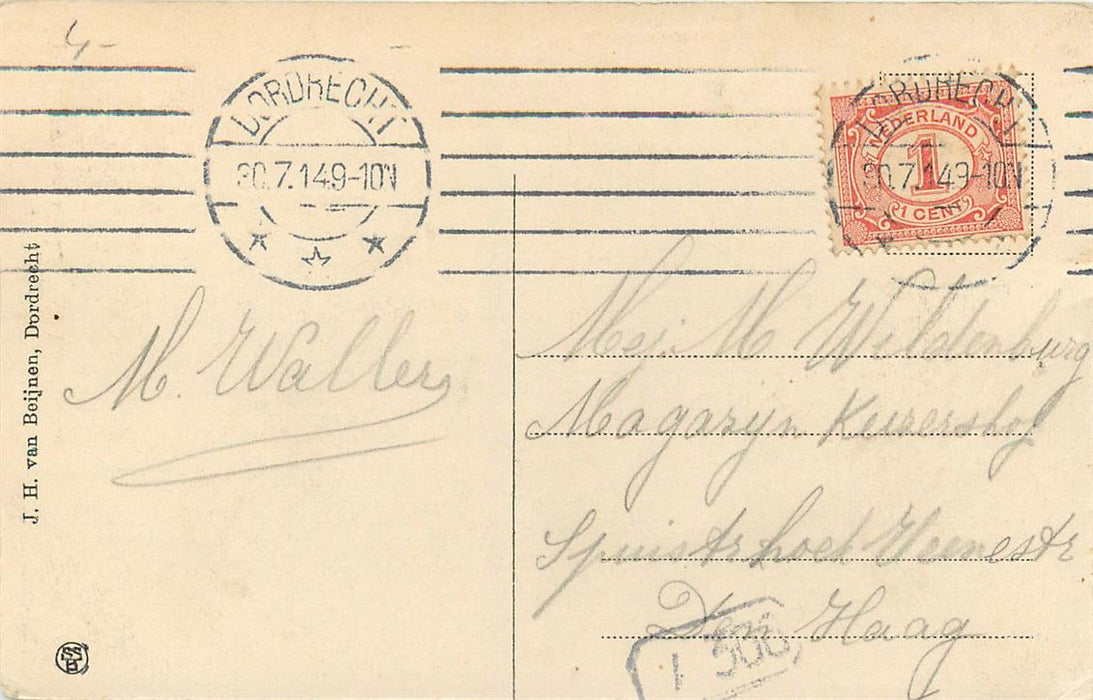 4,-
DORDRECHT
30.7.14 9-10V
DORDRECHT
30.7.14 9-10V
NEDERLAND
1
1 CENT
J. H. van Beijnen, Dordrecht
M. Wallers
Mej. M Wildenburg
Magazyn Keizershof
Spuistr hoek Veenestr
Den Haag
1 306